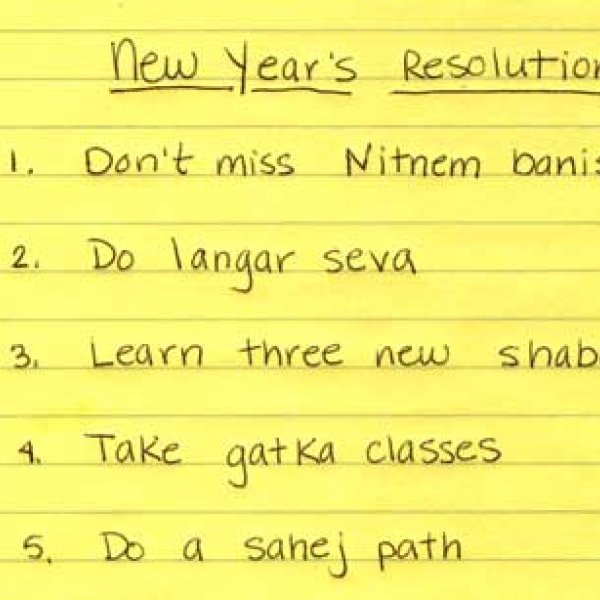 New Year's Resolution
1. Don't miss Nitnem banis
2. Do langar seva
3. Learn three new shab
4. Take gatka classes
5. Do a sahej path